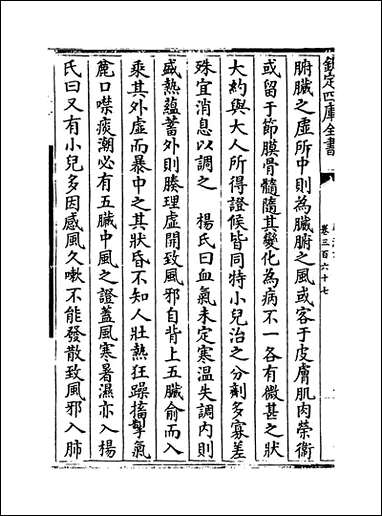 欽定四庫全書
卷三百六十七
腑臟之虛所中則為臟腑之風或客于皮膚肌肉榮衛
或留于節膜骨髓隨其變化為病不一各有微甚之狀
大約與大人所得證候皆同特小兒治之分劑多寡差
殊宜消息以調之　楊氏曰血氣未定寒温失調内則
盛熱蘊蓄外則腠理虛開致風邪自背上五臟俞而入
乘其外虛而暴中之其狀昏不知人壯熱狂躁搐掣氣
麄口噤痰潮必有五臟中風之證蓋風寒暑濕亦入楊
氏曰又有小兒多因感風久嗽不能發散致風邪入肺